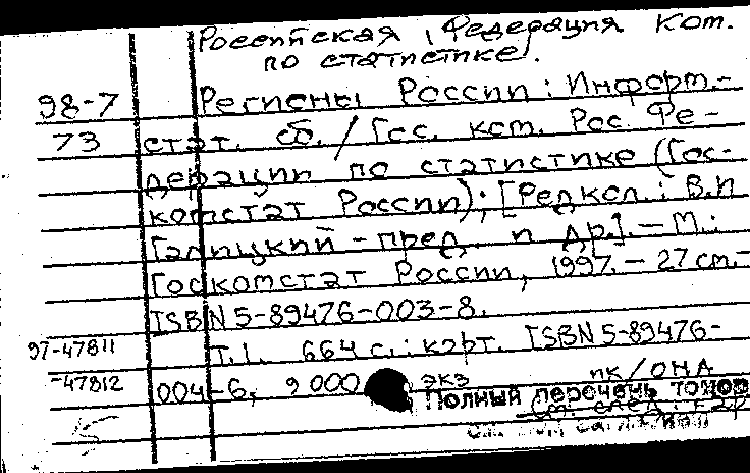 Российская Федерация Ком.
по статистике.
98-7 Регионы России: Информ.-
73 стат. сб. / Гос. ком. Рос. Фе-
дерации по статистике (Гос-
комстат России); [Редкол.: В.И
Галицкий - пред. и др.]. - М.:
Госкомстат России, 1997. - 27 см. -
ISBN 5-89476-003-8.
97-47811 Т.1. 664 с.: карт. ISBN 5-89476-
-47812 004-6, 9 000 экз пк/ОНА
Полный перечень томов
см. след.
15